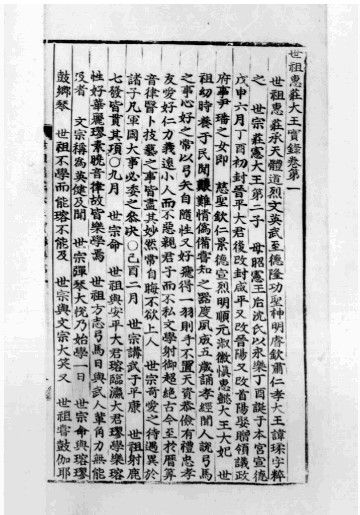 世祖惠莊大王實錄卷第一
世祖惠莊承天體道烈文英武至德隆功聖神明睿欽肅仁孝大王諱瑈字粹
之 世宗莊憲大王第二子 母昭憲王后沈氏以永樂丁酉誕于本宮宣德
戊申六月丁酉初封晉平大君後改封咸平又改晉陽又改首陽娶贈領議政
府事尹璠之女即 慈聖欽仁景德宣烈明順元淑徽愼惠懿大王大妃 世
祖幼時養于民間艱難情僞備嘗知之器度夙成五歲誦孝經聞人說弓馬
之事心好之常以弓矢自隨性又好飛得一羽則手不置天資恭儉有禮忠孝
友愛好仁力義遠小人而不惡親君子而不私文學射御超絶古今至於曆算
音律醫卜技藝之事皆盡其妙然常自晦不欲上人 世宗奇愛之待遇異於
諸子凡軍國大事必委之參決○己酉二月 世宗講武于平康 世祖射鹿
七發皆貫其項○九月 世宗命 世祖與安平大君瑢臨瀛大君璆學樂瑢
性好華麗璆素曉音律故皆樂學焉 世祖方志弓馬日與武人輩角力無能
及者 文宗稱爲英健及聞 世宗彈琴大悅乃始學一日 世宗命與瑢璆
鼓鄕琴 世祖不學而能瑢不能及 世宗與文宗大笑又 世祖嘗鼓伽耶